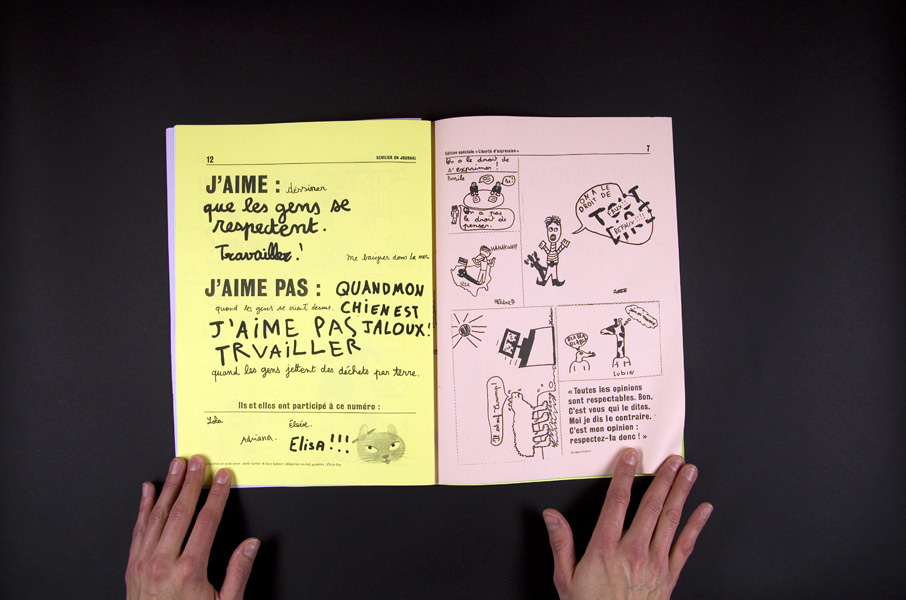 12
SCHILICK ON JOURNAL
J'AIME : dessiner
que les gens se
respectent.
Travailler !
me baigner dans la mer
J'AIME PAS : QUAND MON
quand les gens se crient dessus. CHIEN EST
J'AIME PAS JALOUX!
TRVAILLER
quand les gens jettent des déchets par terre.
Ils et elles ont participé à ce numéro :
Lola
Éloïse.
Adriana.
ELISA !!!
Édition spéciale «Liberté d'expression»
7
On a le droit de
s'exprimer !
Basile
On a pas
le droit de
penser.
HAHAHA!!!
USA
Hélène B
ON A LE
DROIT DE
TOUT
DIRE
BLA BLA
BLABLA
LUBIN
« Toutes les opinions
sont respectables. Bon.
C'est vous qui le dites.
Moi je dis le contraire.
C'est mon opinion :
respectez-la donc ! »